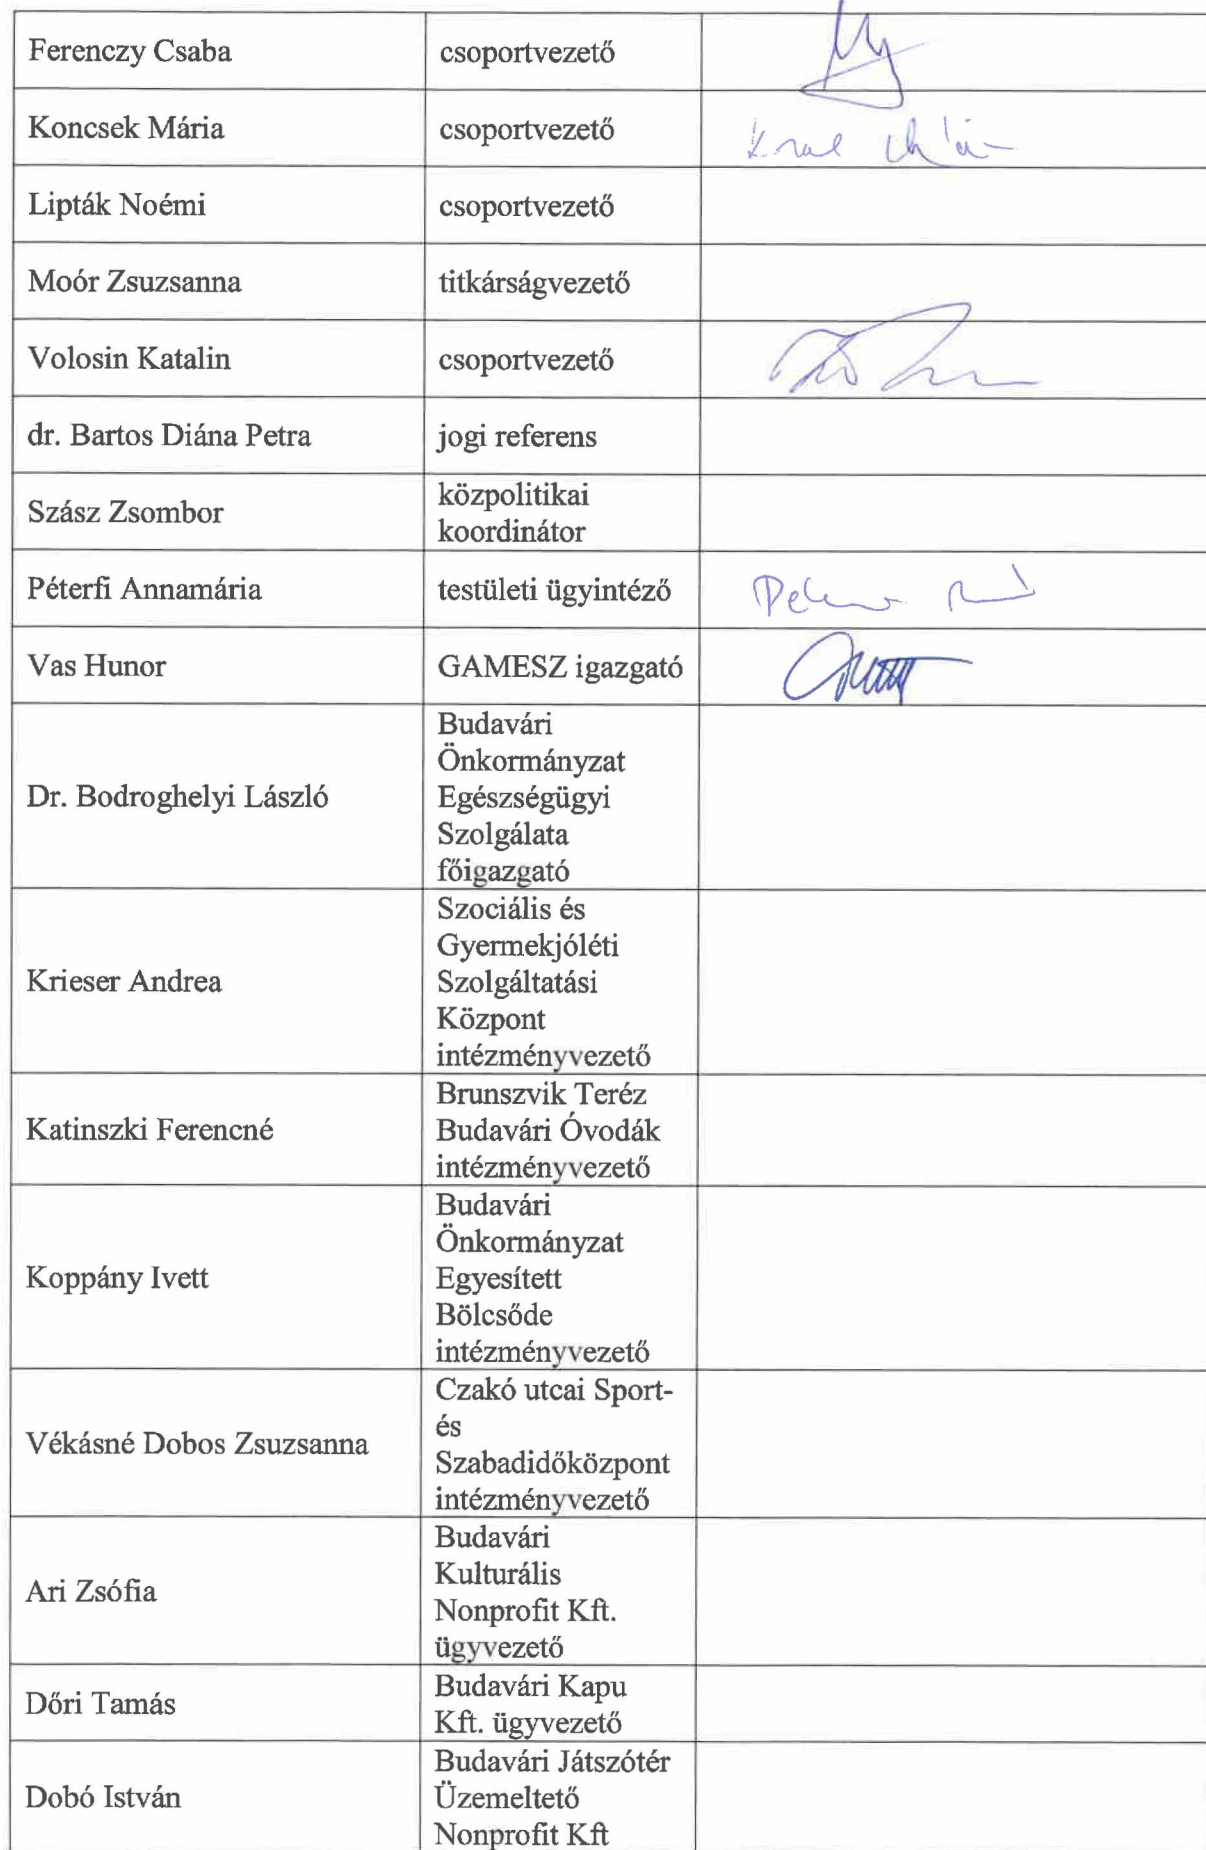 Ferenczy Csaba
csoportvezető
Koncsek Mária
csoportvezető
Lipták Noémi
csoportvezető
Moór Zsuzsanna
titkárságvezető
Volosin Katalin
csoportvezető
dr. Bartos Diána Petra
jogi referens
Szász Zsombor
közpolitikai
koordinátor
Péterfi Annamária
testületi ügyintéző
Vas Hunor
GAMESZ igazgató
Dr. Bodroghelyi László
Budavári
Önkormányzat
Egészségügyi
Szolgálata
főigazgató
Krieser Andrea
Szociális és
Gyermekjóléti
Szolgáltatási
Központ
intézményvezető
Katinszki Ferencné
Brunszvik Teréz
Budavári Óvodák
intézményvezető
Koppány Ivett
Budavári
Önkormányzat
Egyesített
Bölcsőde
intézményvezető
Vékásné Dobos Zsuzsanna
Czakó utcai Sport-
és
Szabadidőközpont
intézményvezető
Ari Zsófia
Budavári
Kulturális
Nonprofit Kft.
ügyvezető
Dőri Tamás
Budavári Kapu
Kft. ügyvezető
Dobó István
Budavári Játszótér
Üzemeltető
Nonprofit Kft